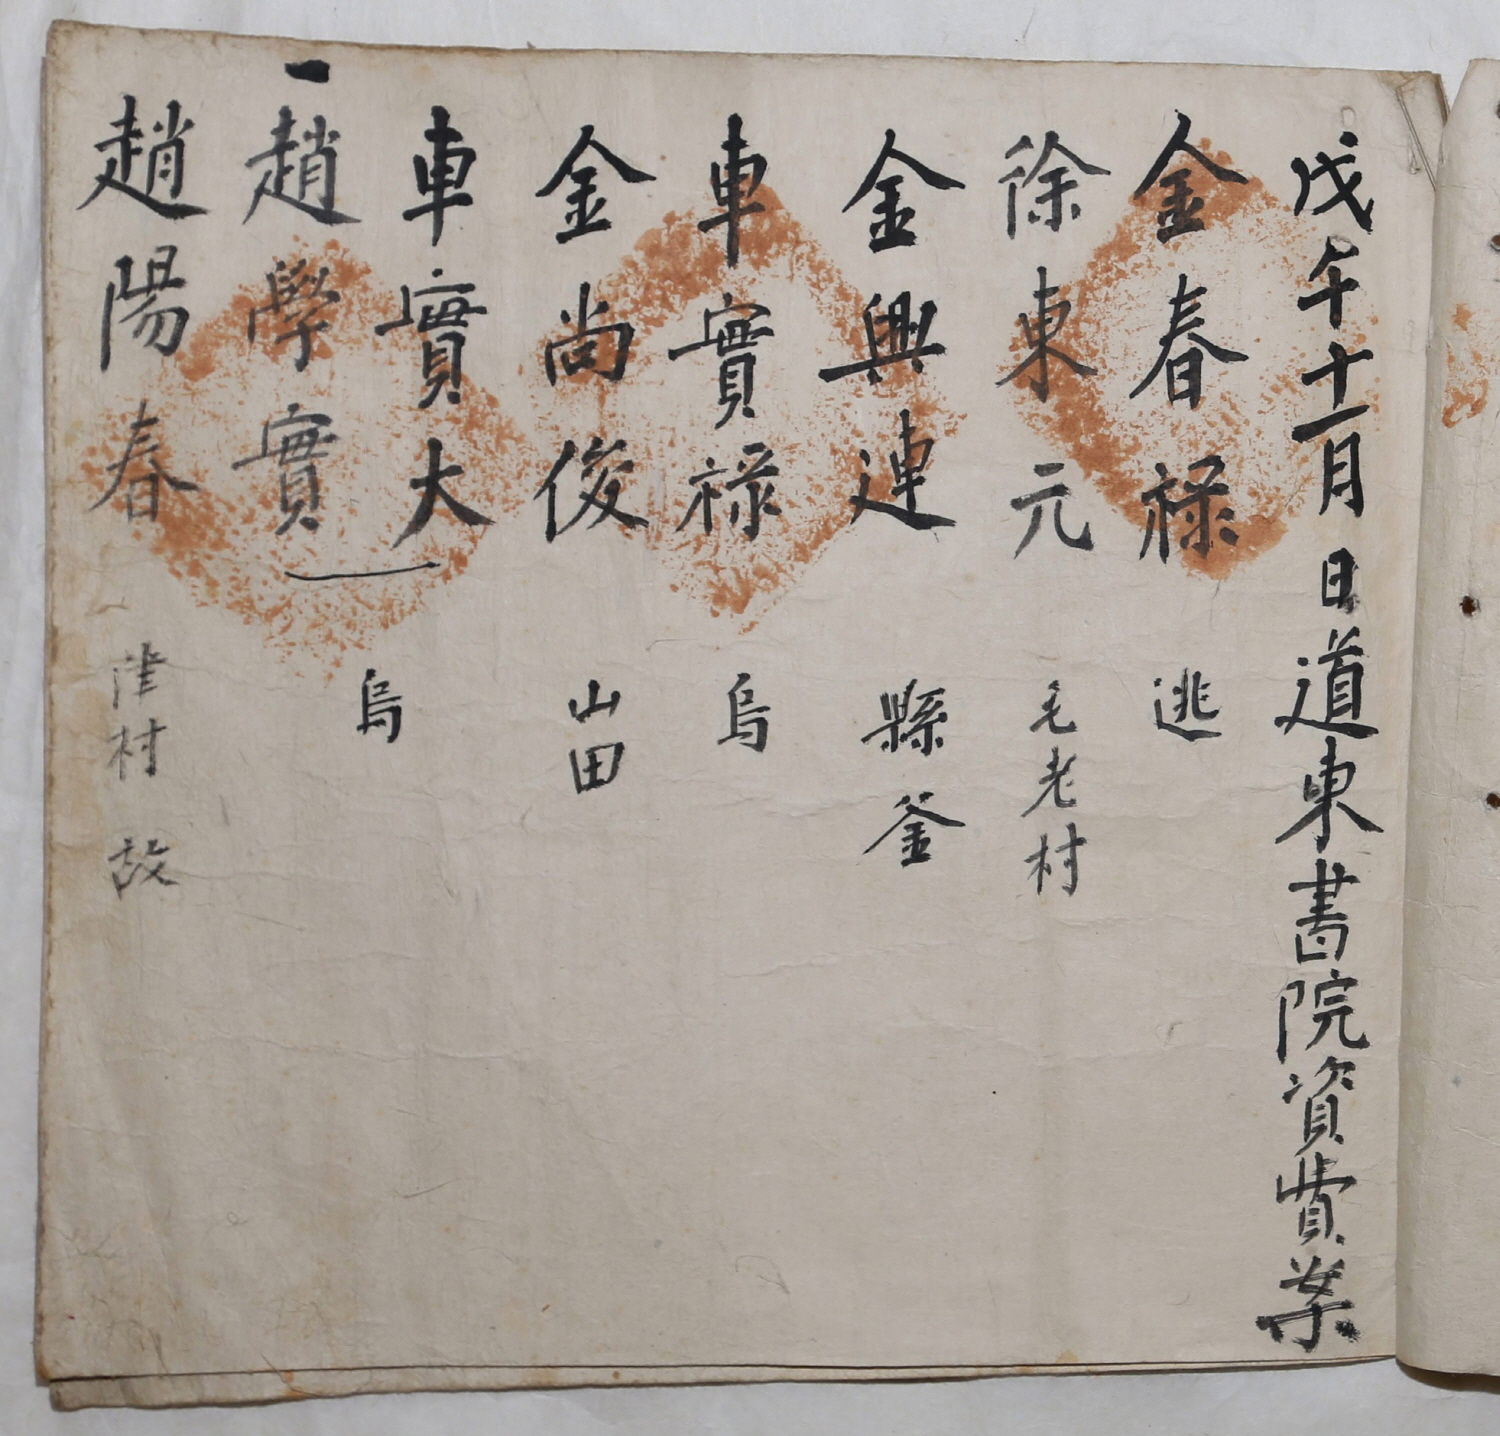 戊午十一月 日道東書院資費案
金春祿 逃
徐東元 毛老村
金興連 縣釜
車實祿 烏
金尚俊 山田
車實大 烏
一趙學實
趙陽春 津村 故